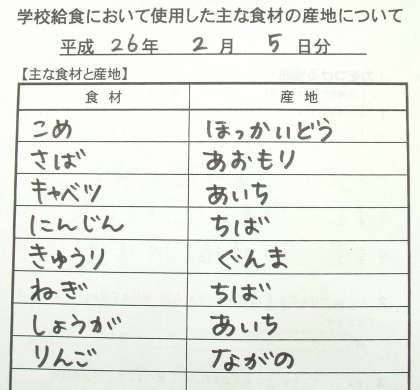 学校給食において使用した主な食材の産地について
平成 26年 2月 5日分
【主な食材と産地】
食材 産地
こめ ほっかいどう
さば あおもり
キャベツ あいち
にんじん ちば
きゅうり ぐんま
ねぎ ちば
しょうが あいち
りんご ながの